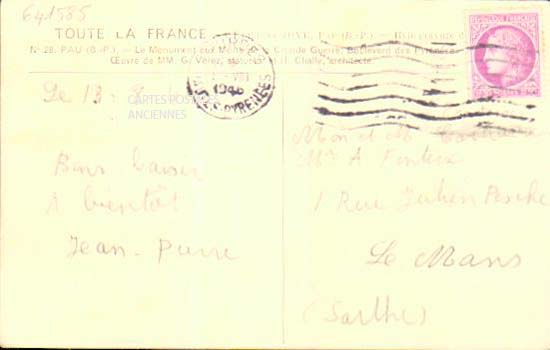 641585
TOUTE LA FRANCE
N° 28. PAU (B.-P.). — Le Monument aux Morts de la Grande Guerre, Boulevard des Pyrénées
Œuvre de MM. G. Vérez, statuaire et H. Challe, architecte.
1946
PYRENEES
CARTES POSTALES
ANCIENNES
Le 13 - 8
Bons baisers
A bientôt
Jean-Pierre
Mon et M
Me A
1 Rue Julien Pesche
Le Mans
(Sarthe)